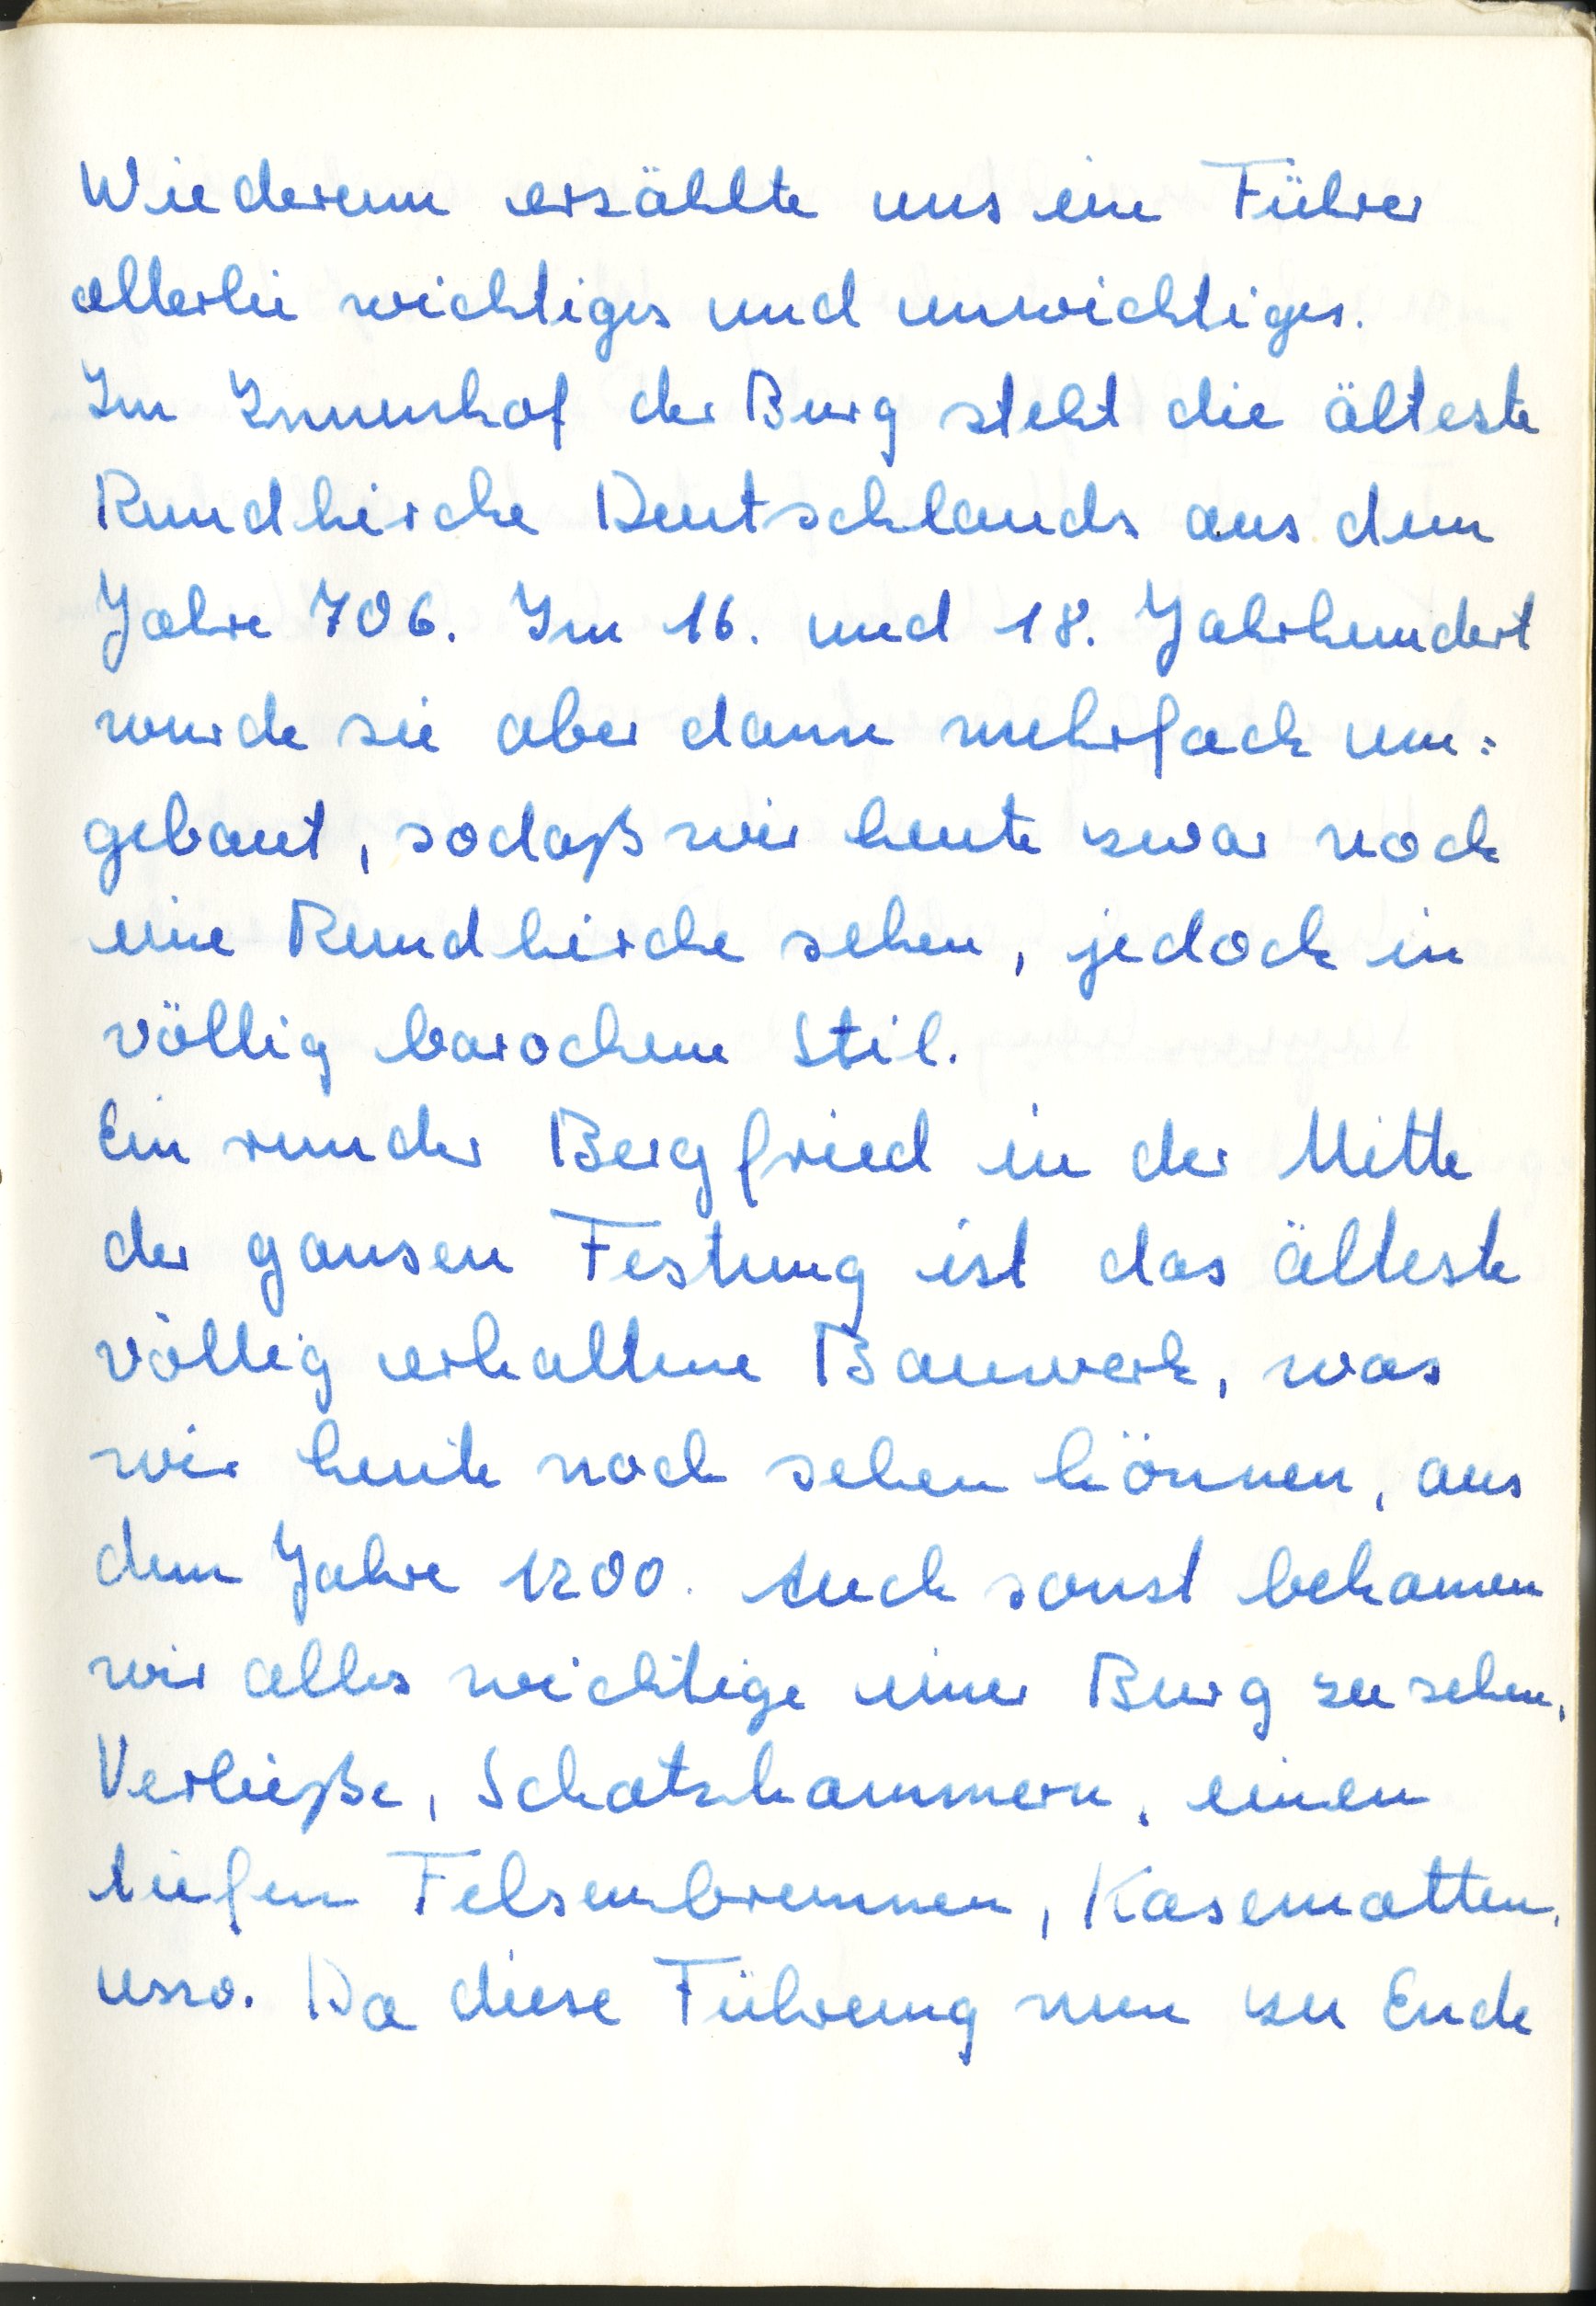 Wiederum erzählte uns ein Führer
allerlei wichtiges und unwichtiges.
Im Innenhof der Burg steht die älteste
Rundkirche Deutschlands aus dem
Jahre 706. Im 16. und 18. Jahrhundert
wurde sie aber dann mehrfach um=
gebaut, sodaß wir heute zwar noch
eine Rundkirche sehen, jedoch in
völlig barockem Stil.
Ein runder Bergfried in der Mitte
der ganzen Festung ist das älteste
völlig erhaltene Bauwerk, was
wir heute noch sehen können, aus
dem Jahre 1200. Auch sonst bekamen
wir alles wichtige einer Burg zu sehen,
Verließe, Schatzkammern, einen
tiefen Felsenbrunnen, Kasematten,
usw. Da diese Führung nun zu Ende